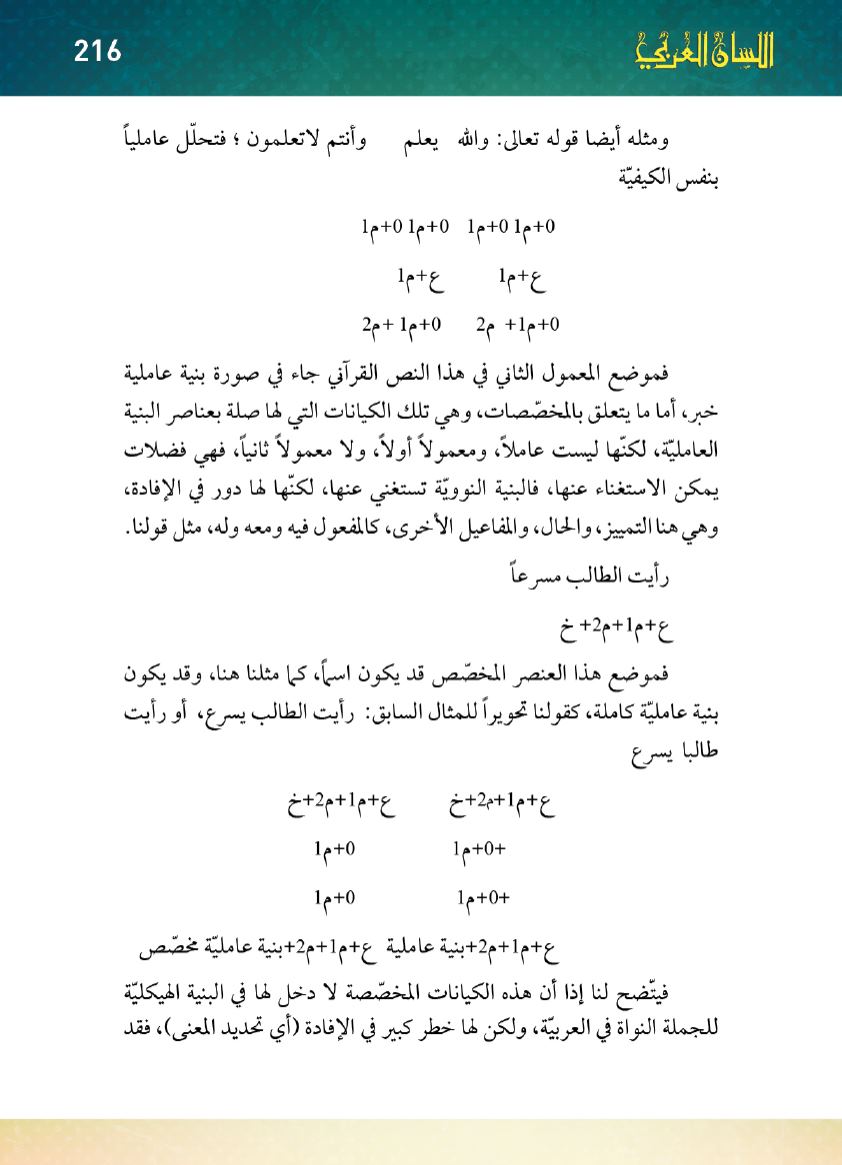 اللسان العربي
216
ومثله أيضا قوله تعالى: والله يعلم وأنتم لاتعلمون ؛ فتحلّل عاملياً
بنفس الكيفيّة
0+م1 0+م1 0+م1 0+م1
ع+م1 ع+م1
0+م1+ م2 0+م1 +م2
فموضع المعمول الثاني في هذا النص القرآني جاء في صورة بنية عاملية
خبر، أما ما يتعلق بالمخصّصات، وهي تلك الكيانات التي لها صلة بعناصر البنية
العامليّة، لكنّها ليست عاملاً، ومعمولاً أولاً، ولا معمولاً ثانياً، فهي فضلات
يمكن الاستغناء عنها، فالبنية النوويّة تستغني عنها، لكنّها لها دور في الإفادة،
وهي هنا التمييز، والحال، والمفاعيل الأخرى، كالمفعول فيه ومعه وله، مثل قولنا.
رأيت الطالب مسرعاً
ع+م1+م2+ خ
فموضع هذا العنصر المخصّص قد يكون اسماً، كما مثلنا هنا، وقد يكون
بنية عامليّة كاملة، كقولنا تحويراً للمثال السابق: رأيت الطالب يسرع، أو رأيت
طالبا يسرع
ع+م1+م2+خ ع+م1+م2+خ
+0+م1 0+م1
+0+م1 0+م1
ع+م1+م2+بنية عاملية ع+م1+م2+بنية عامليّة مخصّص
فيتّضح لنا إذا أن هذه الكيانات المخصّصة لا دخل لها في البنية الهيكليّة
للجملة النواة في العربيّة، ولكن لها خطر كبير في الإفادة (أي تحديد المعنى)، فقد